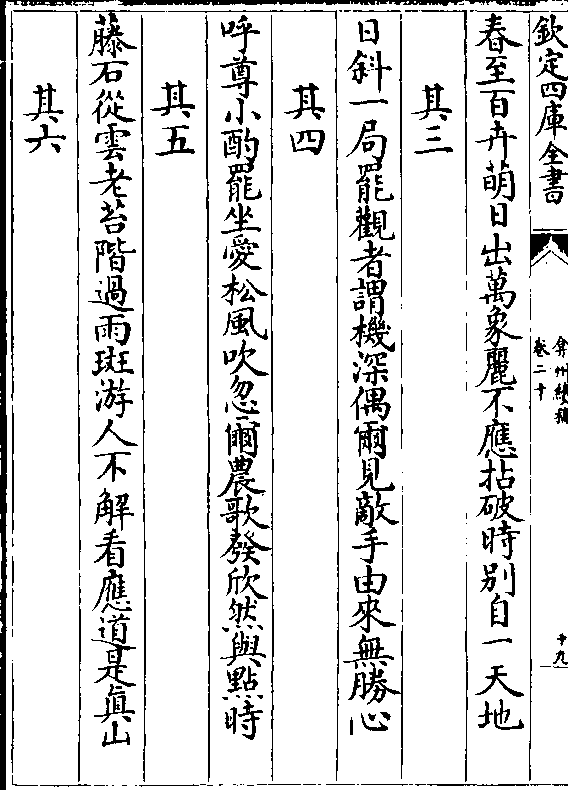 欽定四庫全書
弇州續稿
卷二十
十九
春至百卉萌日出萬象麗不應拈破時别自一天地
其三
日斜一局罷觀者謂機深偶爾見敵手由來無勝心
其四
呼尊小酌罷坐愛松風吹忽爾農歌發欣然與點時
其五
藤石從雲老苔階過雨斑游人不解看應道是真山
其六